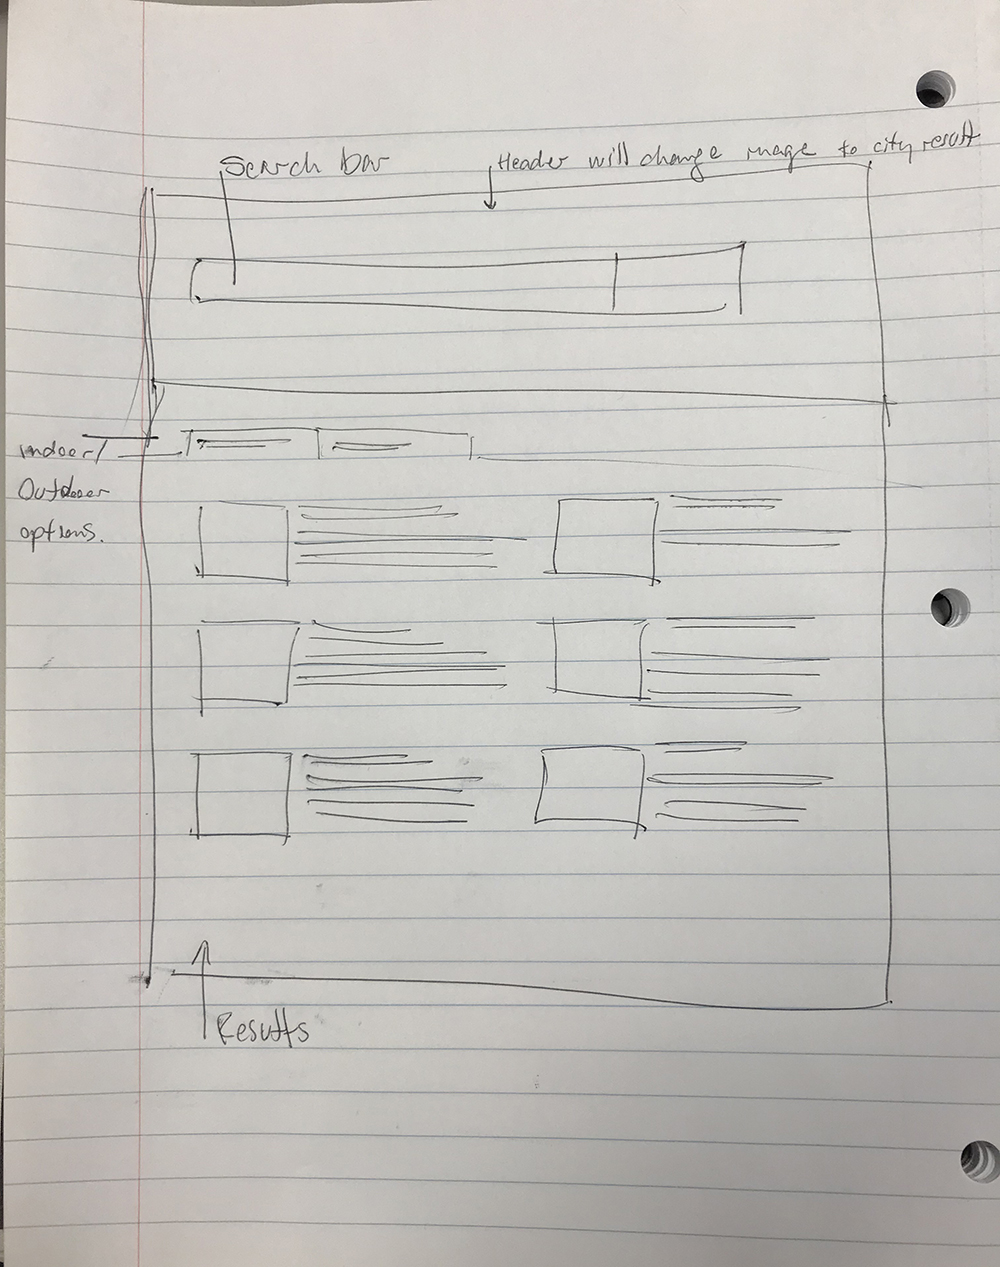 Search bar
Header will change image to city result
indoor/
Outdoor
options.
Results